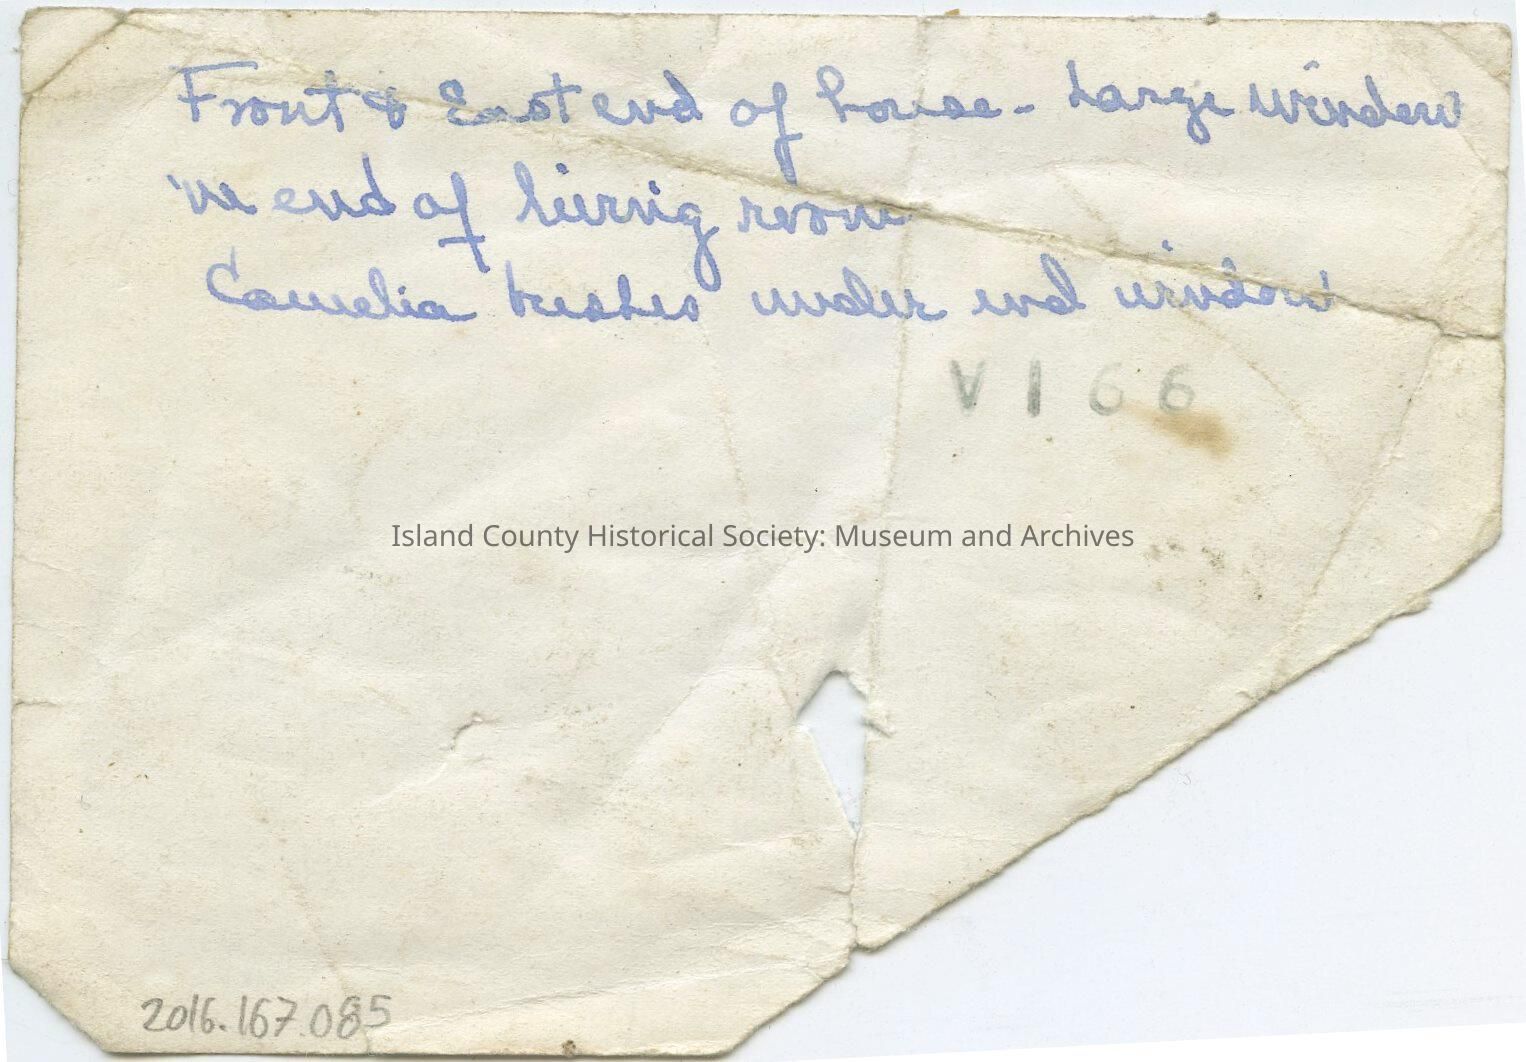 Front & East end of house - Large window
in end of living room
Camelia bushes under end window
V 1 6 6
Island County Historical Society: Museum and Archives
2016.167.085